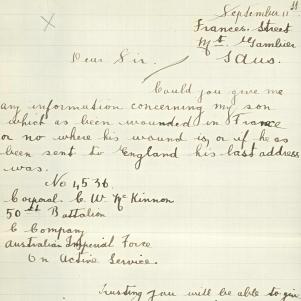 September 11th
Frances. Street
Mt Gambier
S Aus.
Dear Sir.
Could you give me
any information concerning my son
which as been wounded in France
or no where his wound is, or if he as
been sent to England his last address
was.
No 4536.
Corporal. C. W McKinnon
50th Battalion
C Company
Australian Imperial Force
On Active Service.
Trusting you will be able to give